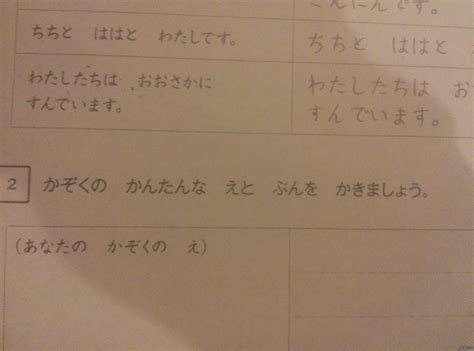 んにんです。
ちちと ははと わたしです。
ちちと ははと
わたしたちは おおさかに
すんでいます。
わたしたちは お
すんでいます。
2 かぞくの かんたんな えと ぶんを かきましょう。
(あなたの かぞくの え)